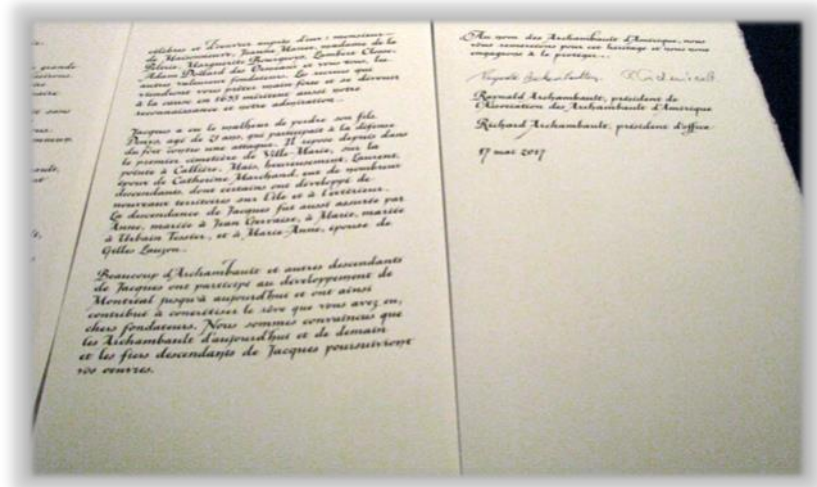 grande
sans
célèbres et d'œuvrer auprès d'eux : monsieur
de Maisonneuve, Jeanne Mance, madame de la
Peltrie, Marguerite Bourgeoys, Lambert Closse,
Adam Dollard des Ormeaux et vous tous, les
autres valeureux fondateurs. Les recrues qui
viendront vous prêter main forte et se dévouer
à la cause en 1653 méritent aussi notre
reconnaissance et notre admiration.
Jacques a eu le malheur de perdre son fils
Denys, âgé de 21 ans, qui participait à la défense
du fort contre une attaque. Il repose depuis dans
le premier cimetière de Ville-Marie, sur la
pointe à Callière. Mais, heureusement, Laurent,
époux de Catherine Marchand, eut de nombreux
descendants, dont certains ont développé de
nouveaux territoires sur l'île et à l'extérieur.
La descendance de Jacques fut aussi assurée par
Anne, mariée à Jean Gervaise, à Marie, mariée
à Urbain Tessier, et à Marie-Anne, épouse de
Gilles Lauzon.
Beaucoup d'Archambault et autres descendants
de Jacques ont participé au développement de
Montréal jusqu'à aujourd'hui et ont ainsi
contribué à concrétiser le rêve que vous avez eu,
chers fondateurs. Nous sommes convaincus que
les Archambault d'aujourd'hui et de demain
et les fiers descendants de Jacques poursuivront
vos œuvres.
Au nom des Archambault d'Amérique, nous
vous remercions pour cet héritage et nous nous
engageons à le protéger.
Reynald Archambault, président de
l'Association des Archambault d'Amérique
Richard Archambault, président d'office
17 mai 2017